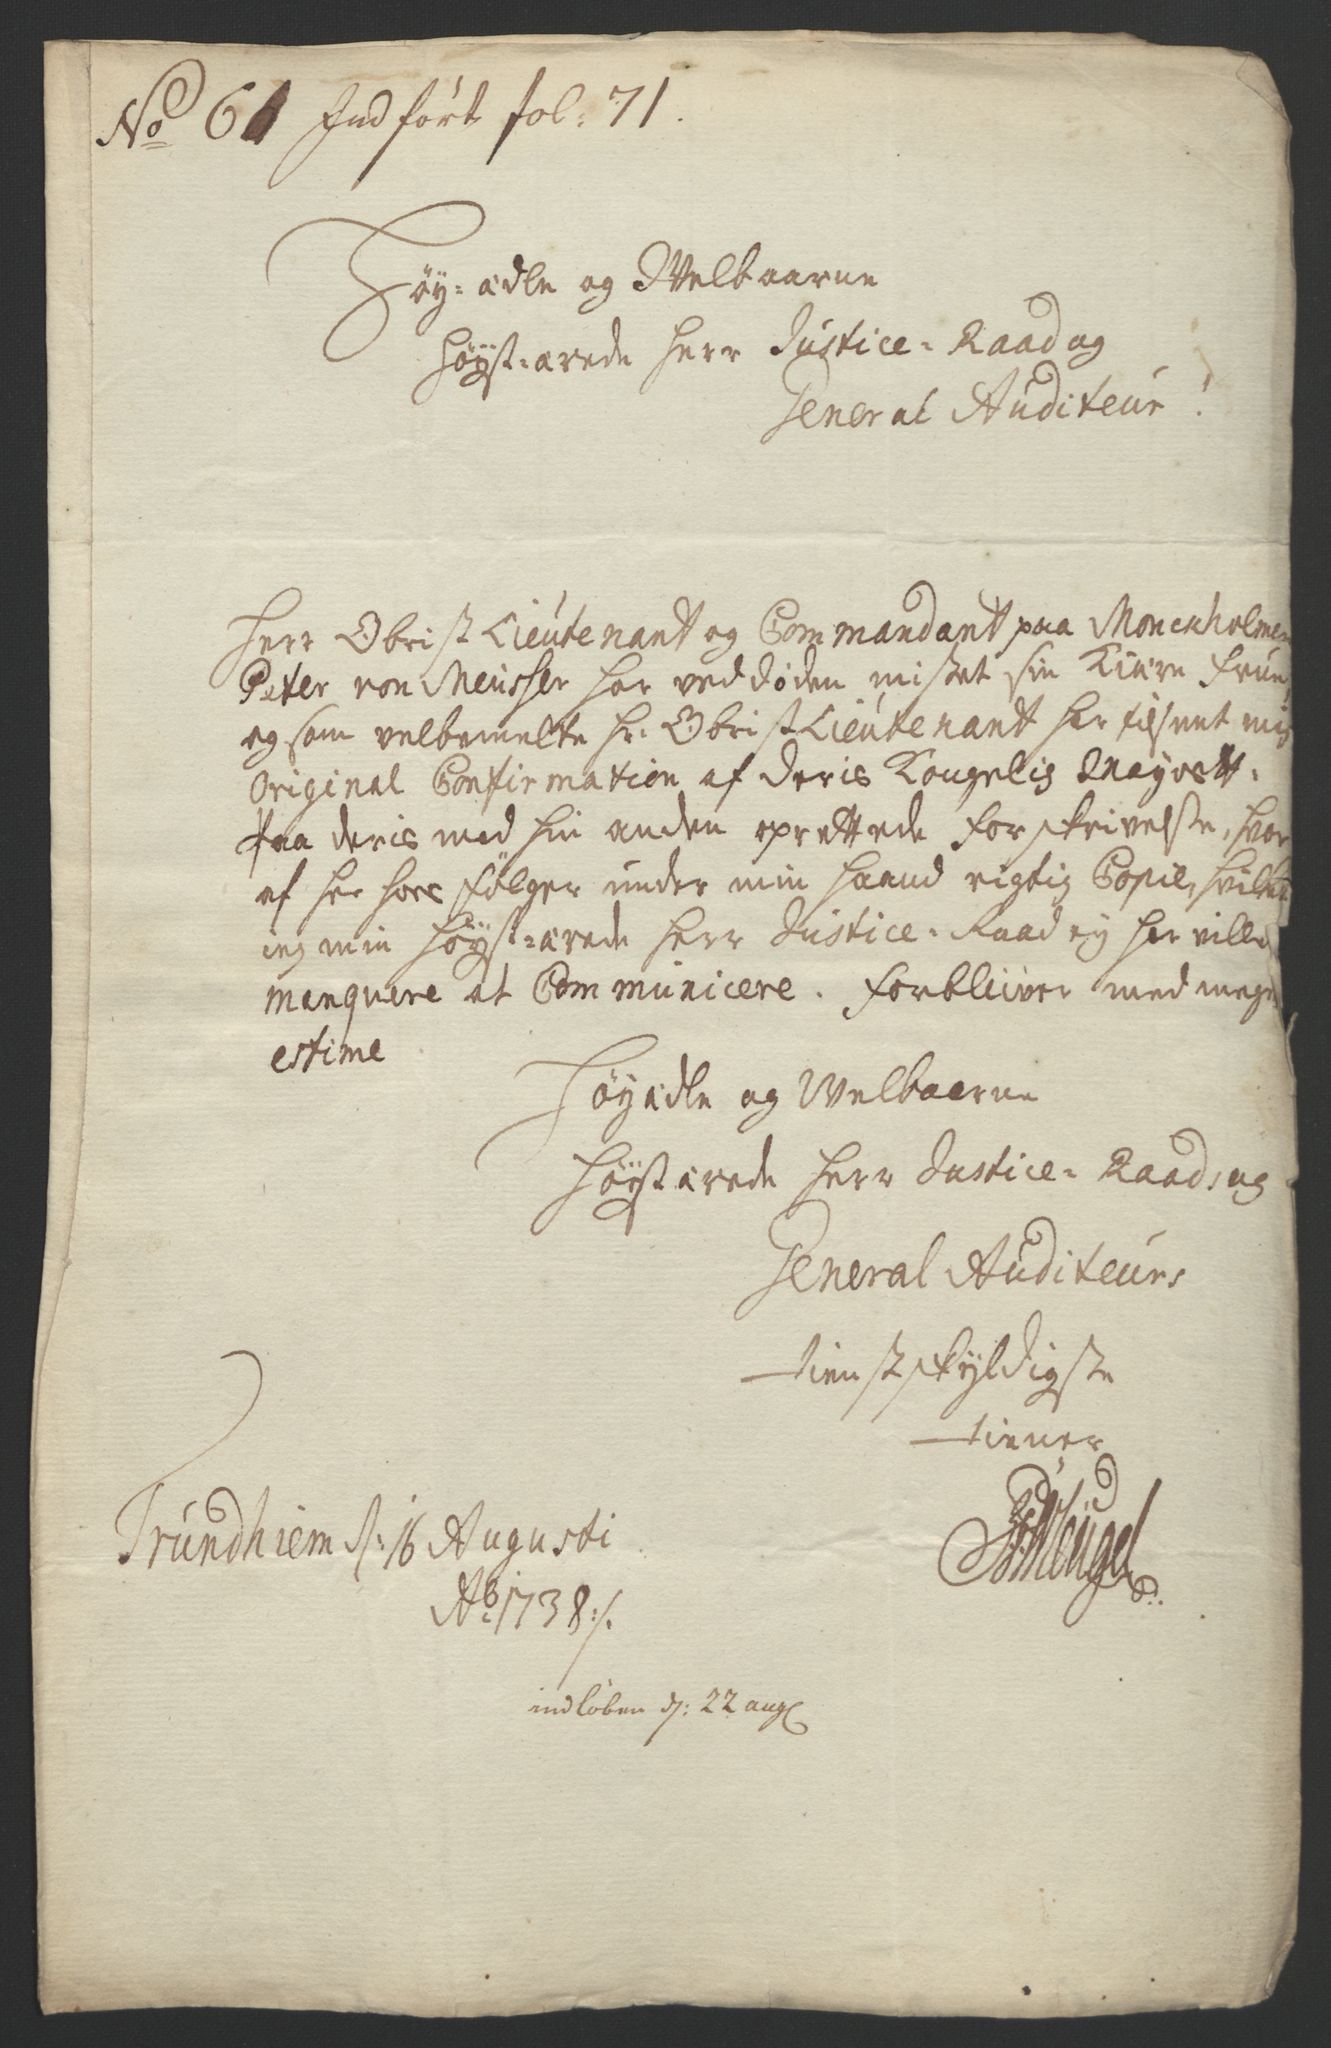 No 61 Indført fol: 71.
Høy-ædle og Welbaarne
Høyst-ærede Herr Justice-Raad og
General Auditeur!
Herr Obrist Lieutenant og Commandant paa Monckholmen
Peter von Meusser har ved døden mistet sin Kiære Frue,
og som velbemelte Hr. Obrist Lieutenant har tilsent mig
Original Confirmation af Deris Kongelig Mayestt.
paa deris med hin anden oprettede Forskrivelse, hvor
af her hoes følger under min haand rigtig Copie, hvilket
ieg min Høyst-ærede Herr Justice-Raad ey har villed
manquere at Communicere. Forbliiver med megen
estime
Høyædle og Welbaarne
Høystærede Herr Justice-Raads og
General Auditeurs
tienstskyldigste
tiener
Trundhiem d: 16 Augusti
Ao 1738:/.
indløben d: 22 aug